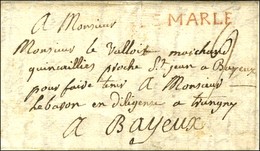 A Monsieur
MARLE
Monsieur le Valloit marchand
quincaillier proche St Jean a Bayeux
pour faire tenir A Monsieur
Lebaron en diligence a
A BAyeux